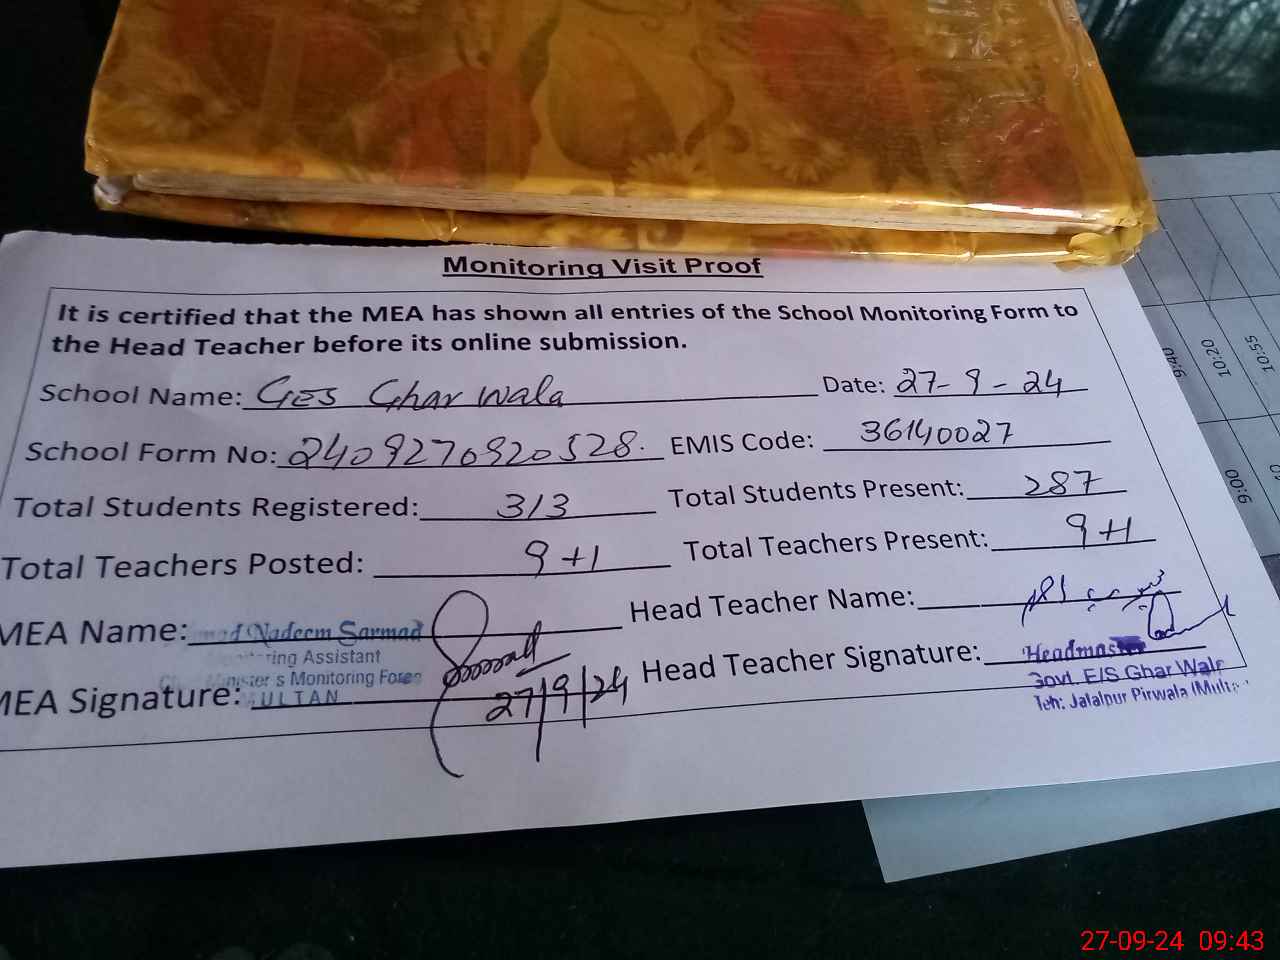 Monitoring Visit Proof
It is certified that the MEA has shown all entries of the School Monitoring Form to
the Head Teacher before its online submission.
School Name: GES Ghar Wala Date: 27-9-24
School Form No: 2409270920528. EMIS Code: 36140027
Total Students Registered: 313 Total Students Present: 287
Total Teachers Posted: 9+1 Total Teachers Present: 9+1
MEA Name: Nadeem Sarmad Head Teacher Name:
Assistant
s Monitoring Force
MEA Signature: MULTAN 27/9/24 Head Teacher Signature: Headmaster
Govt. E/S Ghar Wala
Teh: Jalalpur Pirwala (Multan
9:40 10:20 10:55
9:00
27-09-24 09:43